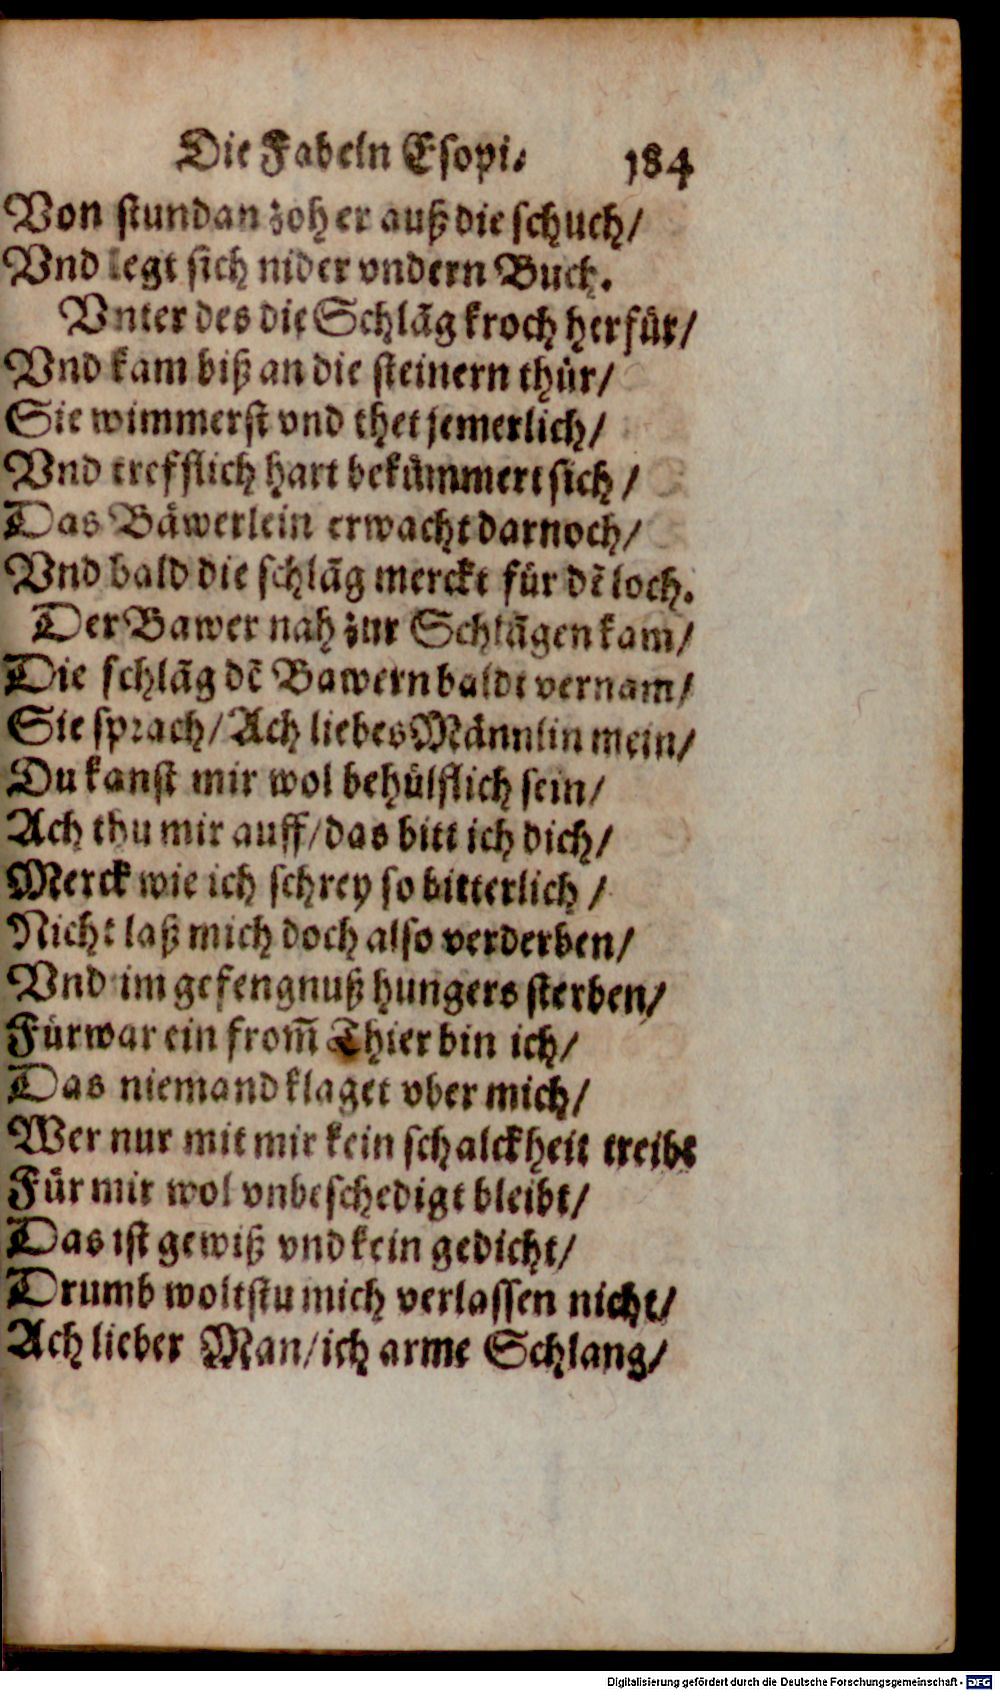 Die Fabeln Esopi. 184
Von stundan zoh er auß die schuch/
Vnd legt sich nider vndern Buch.
Vnter des die Schlãg kroch herfür/
Vnd kam biß an die steinern thür/
Sie wimmerst vnd thet jemerlich/
Vnd trefflich hart bekümmert sich/
Das Bäwerlein erwacht darnoch/
Vnd bald die schlãg merckt für dẽ loch.
Der Bawer nah zur Schlãgen kam/
Die schlãg dẽ Bawern baldt vernam/
Sie sprach/ Ach liebes Männlin mein/
Du kanst mir wol behülflich sein/
Ach thu mir auff/ das bitt ich dich/
Merck wie ich schrey so bitterlich/
Nicht laß mich doch also verderben/
Vnd im gefengnuß hungers sterben/
Fürwar ein from̃ Thier bin ich/
Das niemand klaget vber mich/
Wer nur mit mir kein schalckheit treibt
Für mir wol vnbeschedigt bleibt/
Das ist gewiß vnd kein gedicht/
Drumb woltstu mich verlassen nicht/
Ach lieber Man/ ich arme Schlang/
Digitalisierung gefördert durch die Deutsche Forschungsgemeinschaft - DFG